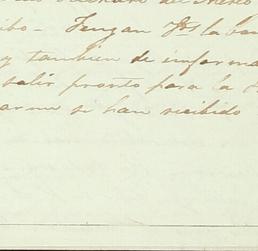 ibo - Tengan Vds la bon
y tambien de informa
salir pronto para la
arme se han recibido